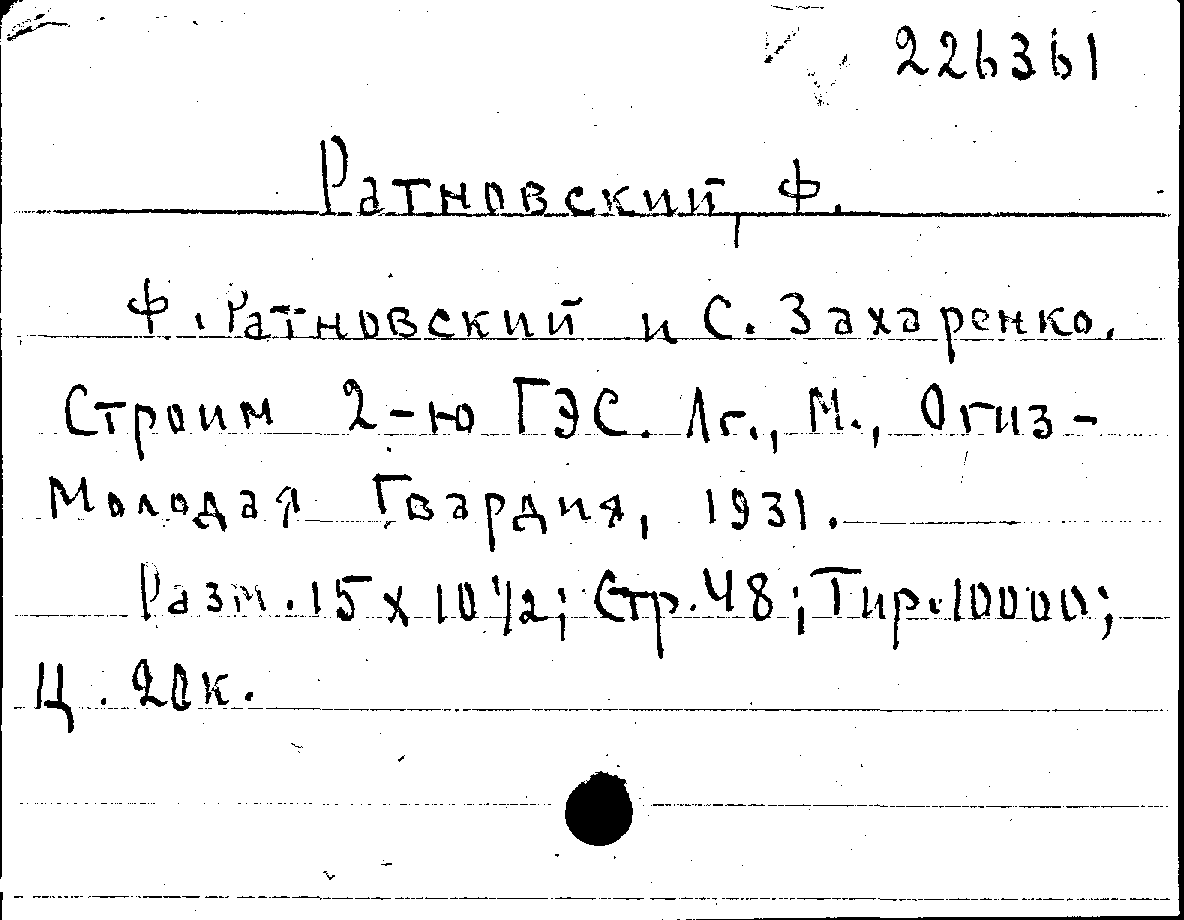 226361
Ратновский, Ф.
Ф. Ратновский и С. Захаренко.
Строим 2-ю ГЭС. Лг., М., Огиз-
Молодая Гвардия, 1931.
Разм. 15 х 10 1/2; Стр. 48; Тир. 10000;
Ц. 20к.